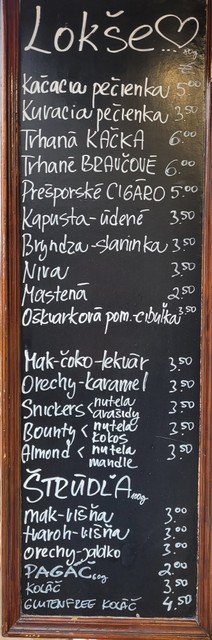 Lokše...
Kačacia pečienka 5⁰⁰
Kuracia pečienka 3.⁵⁰
Trhaná KAČKA 6.⁰⁰
Trhané BRAVČOVÉ 6.⁰⁰
Prešporské CIGÁRO 5.⁰⁰
Kapusta-údené 3.⁵⁰
Bryndza-slaninka 3.⁵⁰
Niva 3.⁵⁰
Mastená 2.⁵⁰
Oškvarková pom.-cibuľka 3.⁵⁰
Mak-čoko-lekvár 3.⁵⁰
Orechy-karamel 3.⁵⁰
Snickers < nutela arašidy 3.⁵⁰
Bounty < nutela kokos 3.⁵⁰
Almond < nutela mandle 3.⁵⁰
ŠTRÚDĽA
mak-višňa 3.⁰⁰
tvaroh-višňa 3.⁰⁰
orechy-jablko 3.⁰⁰
PAGÁČ 2.⁰⁰
KOLÁČ 3.⁵⁰
GLUTENFREE KOLÁČ 4.⁵⁰